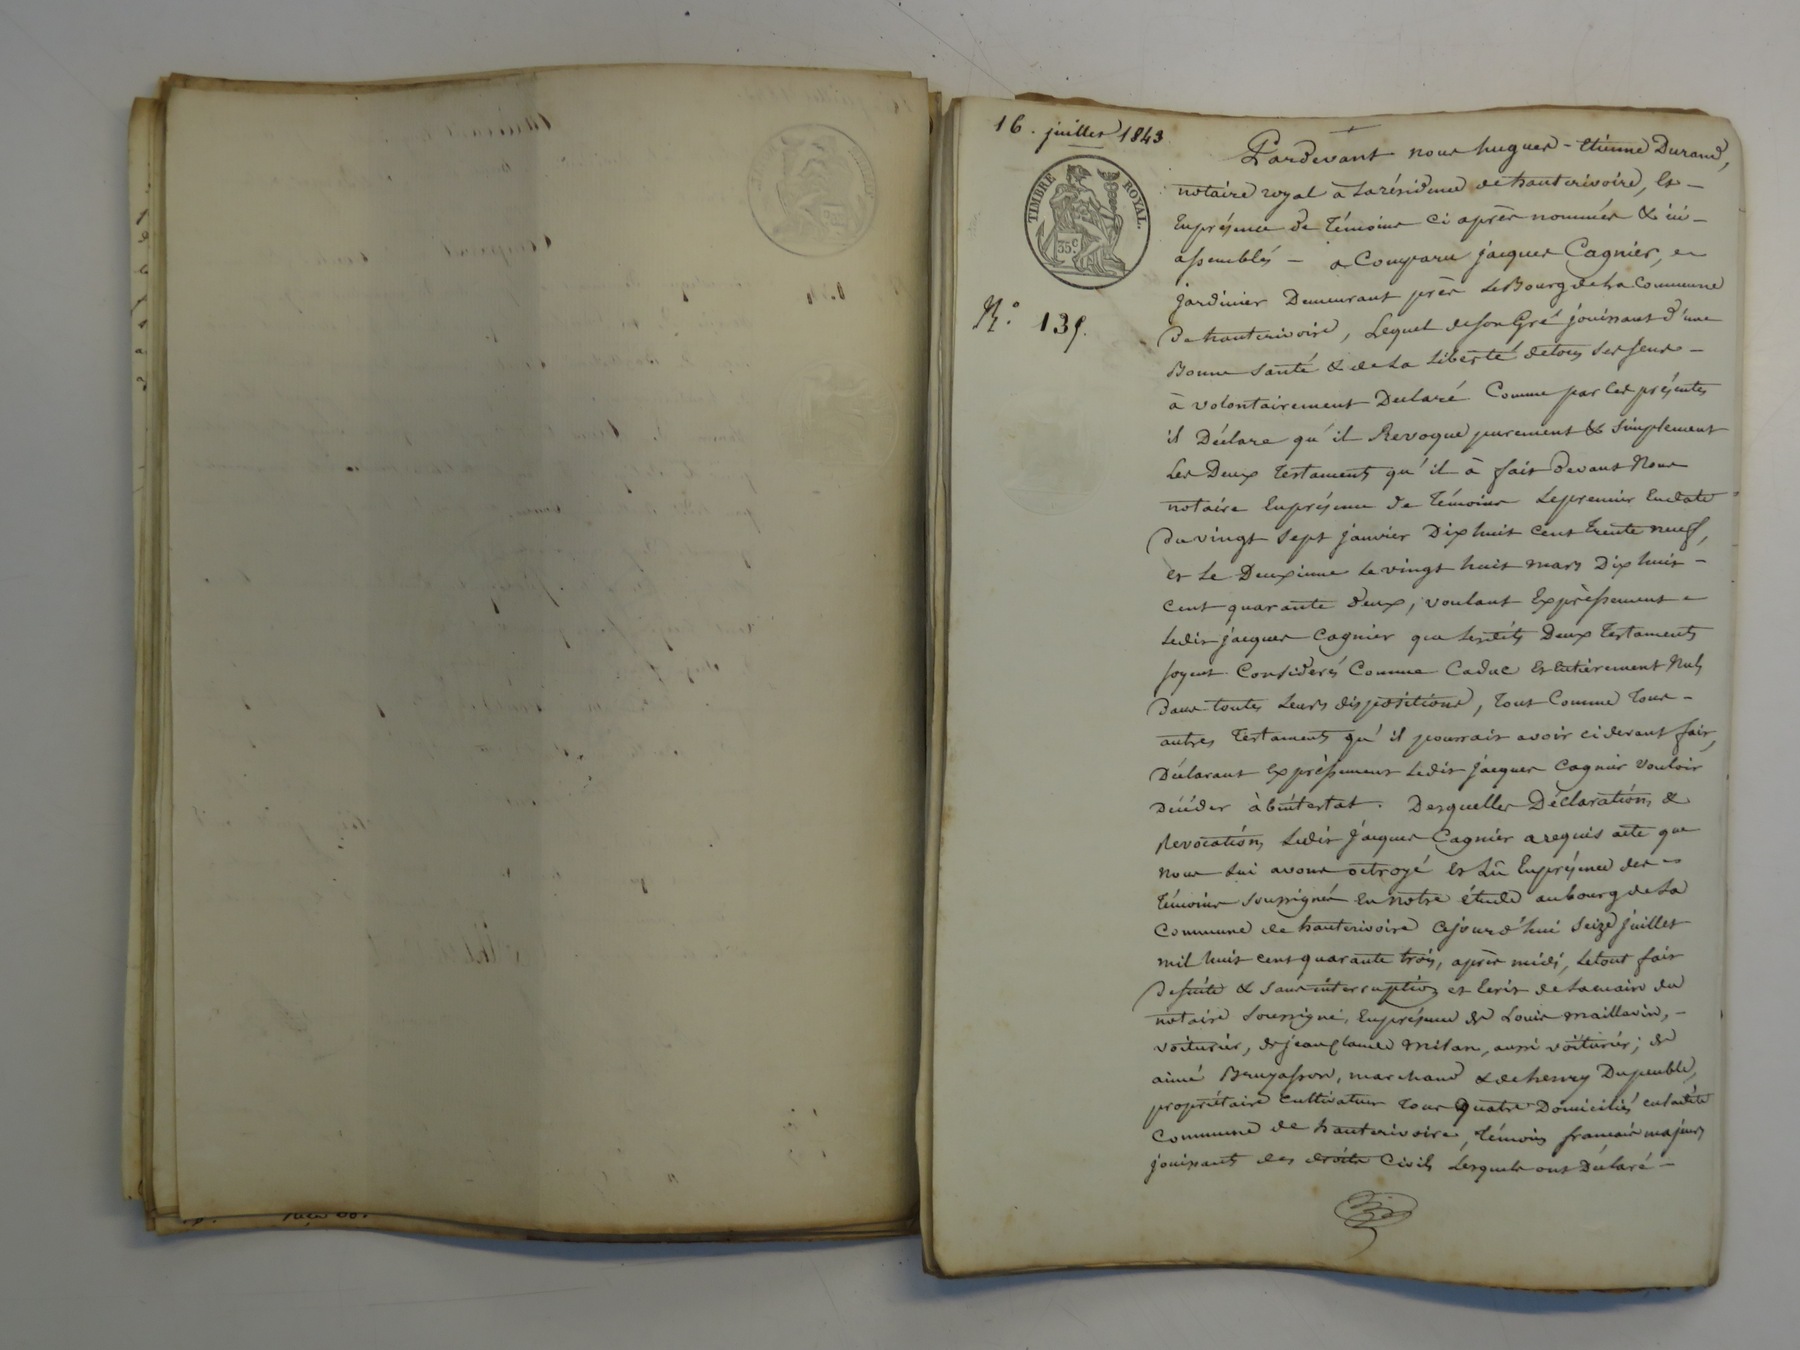 16. juillet 1843
TIMBRE ROYAL.
35 c
N.° 139.
Pardevant nous hugues - Etienne Durand,
notaire royal à La résidence de hauterivoire, Et -
En présence de Témoins ci après nommés & ici -
assemblés - a Comparu jacques Cagnier,
jardinier Demeurant près Le Bourg de La Commune
De hauterivoire, Lequel de son Gré jouissant d'une
Bonne Santé & de La Liberté de tous Ses Sens -
à volontairement Declaré Comme par Ces présentes
il Déclare qu'il Revoque purement & Simplement
Les Deux Testaments qu'il à fait Devant Nous
notaire En présence de Témoins Le premier En date
Du vingt Sept janvier Dix huit Cent Trente neuf,
et Le Deuxieme Le vingt huit mars Dix huit -
Cent quarante deux, voulant Expréssement
Ledit jacques Cagnier que Lesdits Deux Testaments
soyent Considerés Comme Caduc Et Entièrement Nuls
Dans toutes Leurs dispositions, Tout Comme Tous -
autres Testaments qu'il pourrait avoir ci devant fait,
Déclarant Expréssement Ledit jacques Cagnier vouloir
Décéder àbintestat. Desquelles Déclarations &
Revocations Ledit jacques Cagnier a requis acte que
Nous Lui avons octroyé Et Lû En présence des
Témoins Soussignés En notre étude au bourg de La
Commune de hauterivoire Cejourd'hui Seize juillet
mil huit cent quarante trois, après midi, Le tout fait
De suite & Sans interruption et Ecrit de La main du
notaire Soussigné, En présence de Louis Maillavin, -
voiturier, de jean Claude Milan, aussi voiturier; de
aimé Bruyasson, marchand & de henry Dupeuble,
propriétaire Cultivateur Tous Quatre Domiciliés en Ladite
Commune de hauterivoire, Témoins francais majeurs
jouissants des droits Civils Lesquels ont Déclaré -